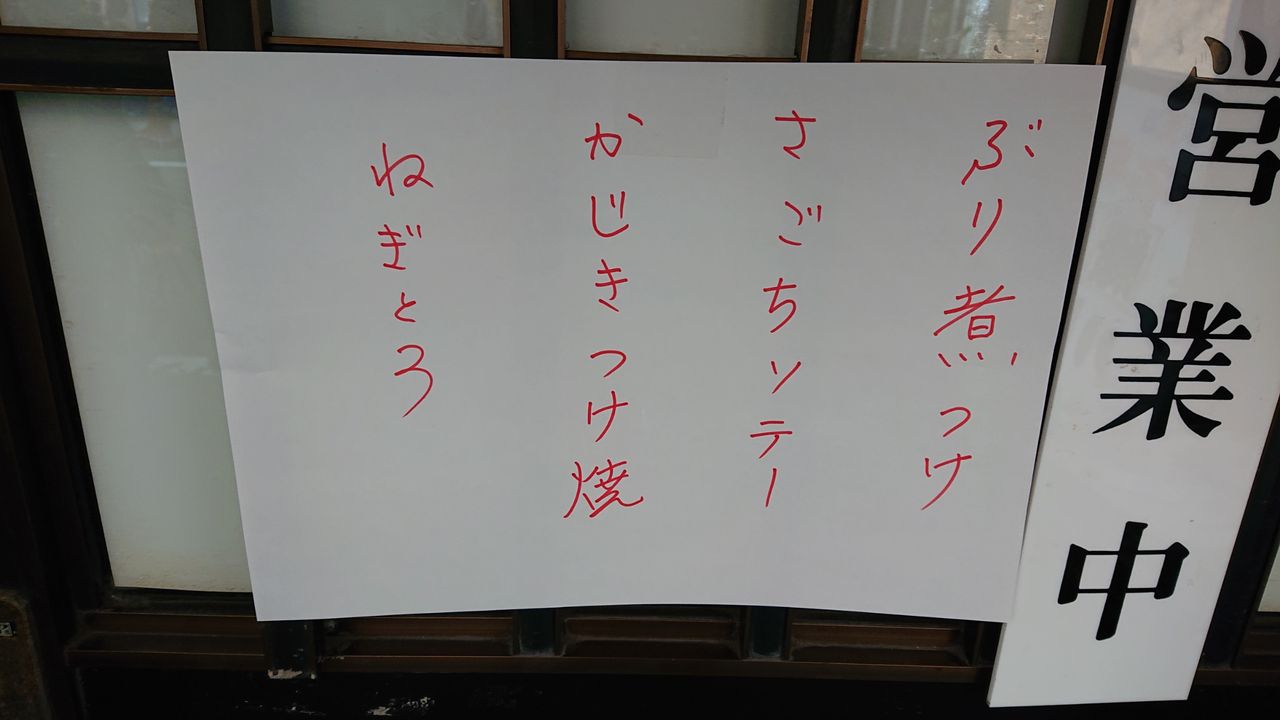 営業中
ぶり煮つけ
さごちソテー
かじきつけ焼
ねぎとろ